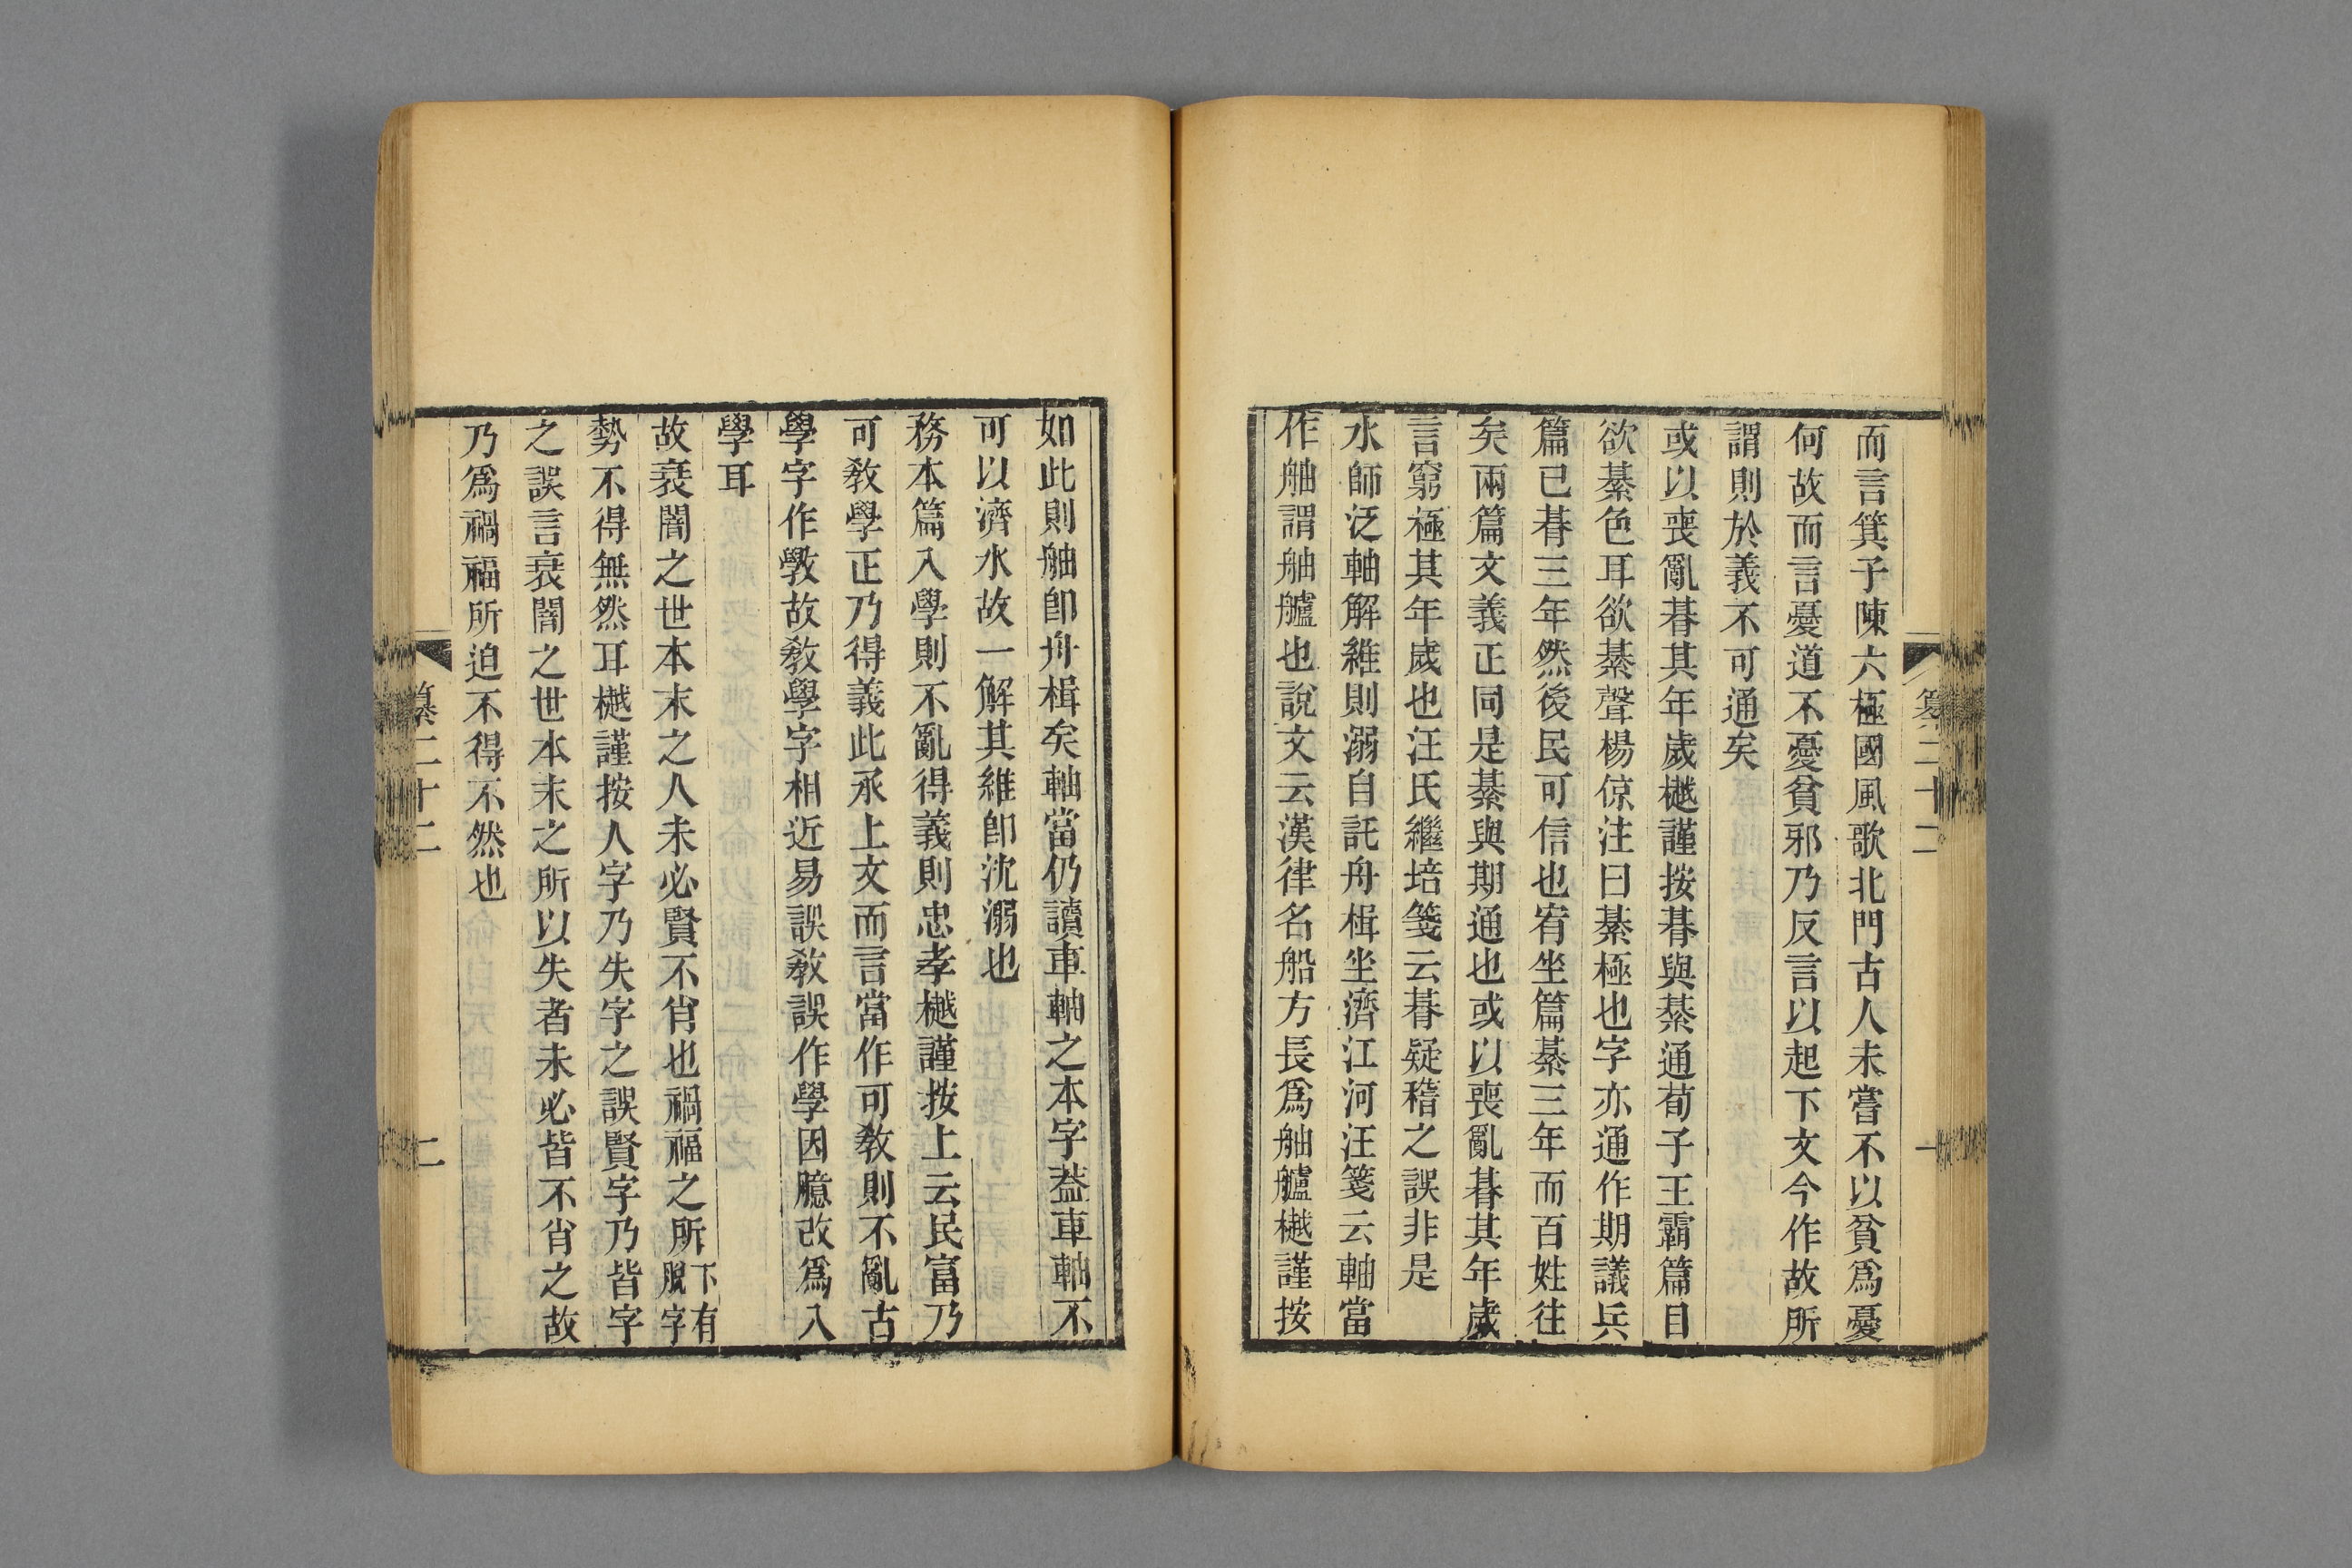 而言箕子陳六極國風歌北門古人未嘗不以貧爲憂
何故而言憂道不憂貧邪乃反言以起下文今作故所
謂則於義不可通矣
或以喪亂朞其年歲樾謹按朞與綦通荀子王霸篇目
欲綦色耳欲綦聲楊倞注曰綦極也字亦通作期議兵
篇已朞三年然後民可信也宥坐篇綦三年而百姓往
矣兩篇文義正同是綦與期通也或以喪亂朞其年歲
言窮極其年歲也汪氏繼培箋云朞疑稽之誤非是
水師泛軸解維則溺自託舟楫坐濟江河汪箋云軸當
作舳謂舳艫也說文云漢律名船方長爲舳艫樾謹按
纂二十二
一
如此則舳卽舟楫矣軸當仍讀車軸之本字葢車軸不
可以濟水故一解其維卽沈溺也
務本篇入學則不亂得義則忠孝樾謹按上云民富乃
可敎學正乃得義此承上文而言當作可敎則不亂古
學字作斆故敎學字相近易誤敎誤作學因臆改爲入
學耳
故衰闇之世本末之人未必賢不肖也禍福之所下有脫字
勢不得無然耳樾謹按人字乃失字之誤賢字乃皆字
之誤言衰闇之世本末之所以失者未必皆不肖之故
乃爲禍福所迫不得不然也
纂二十二
二